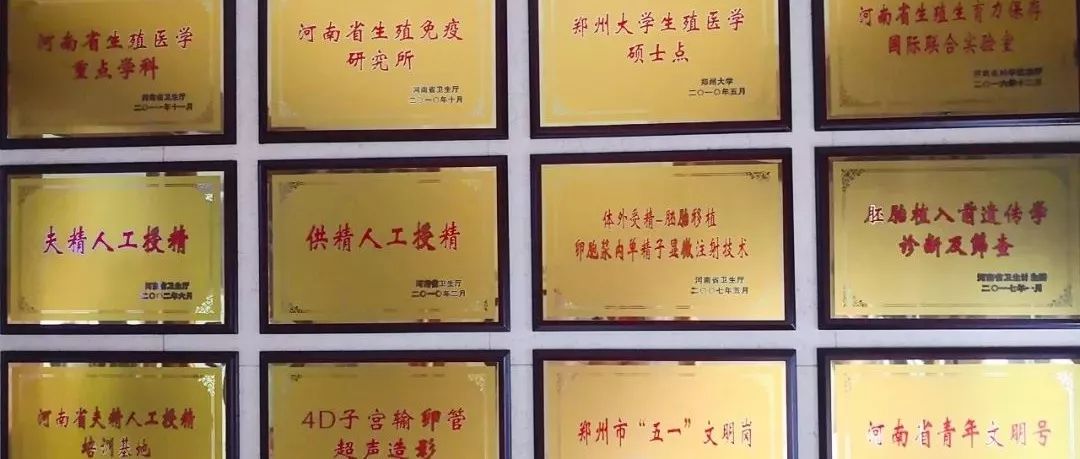 河南省生殖医学
重点学科
河南省卫生厅
二〇一一年十一月
河南省生殖免疫
研究所
河南省卫生厅
二〇一〇年十月
郑州大学生殖医学
硕士点
郑州大学
二〇一〇年五月
河南省生殖生育力保存
国际联合实验室
河南省科学技术厅
二〇一六年十二月
夫精人工授精
河南省卫生厅
二〇〇二年六月
供精人工授精
河南省卫生厅
二〇一〇年二月
体外受精-胚胎移植
卵胞浆内单精子显微注射技术
河南省卫生厅
二〇〇七年五月
胚胎植入前遗传学
诊断及筛查
河南省卫生计生委
二〇一七年一月
河南省夫精人工授精
培训基地
4D子宫输卵管
超声造影
郑州市“五一”文明岗
河南省青年文明号